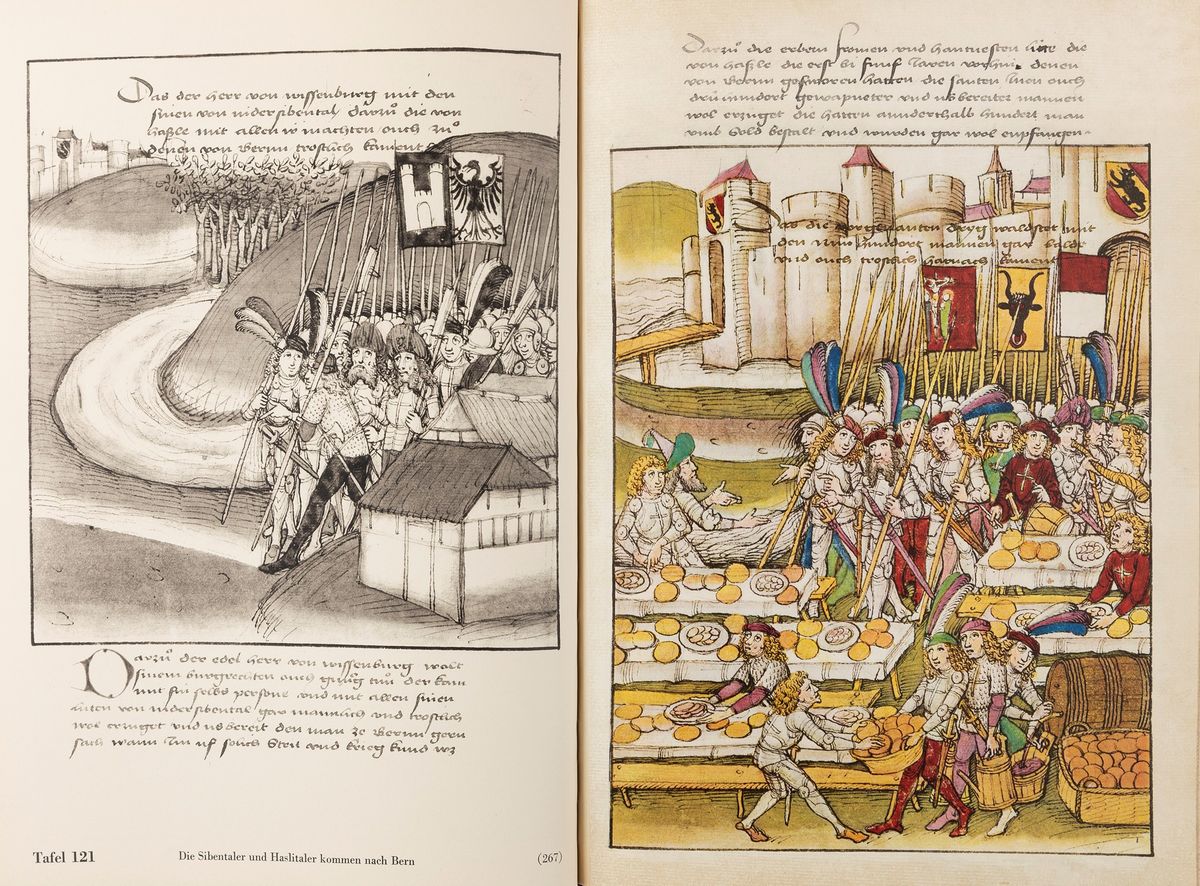 Das der herr von wissenburg mit den
sinen von nidersibental darzů die von
haßle mit allen ir machten ouch zů
denen von Bernn trostlich kament
Darzů der edel herr von wissenburg wolt
sinem burgrechten ouch gnůg tun der kam
mit sin selbs persone und mit allen sinen
lüten von nidersibental gar mannlich und trostlich
wol erzuget und usbereit den man ze Bernn gern
sach wann Im uf solich Streit und krieg kund wz
Tafel 121
Die Sibentaler und Haslitaler kommen nach Bern
(267)
Darzů die erbern fromen und hantuesten lüte die
von haßle die erst bi fünf Jaren vorhin denen
von Bernn geswooren hatten die santen Inen ouch
drü hundert gewapneter und usbereiter mannen
wol erzuget die hatten annderthalb hundert man
umb Sold bestalt und wurden gar wol enpfangen
das die vorgenanten dryg waldstet mit
den nün hundert mannen gar balde
und ouch trostlich harnach kament